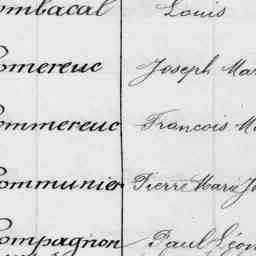 ombacal Louis
omereuc Joseph Mar
ommereuc Francois M
ommunier Pierre Marie Jo
ompagnon Paul Léon